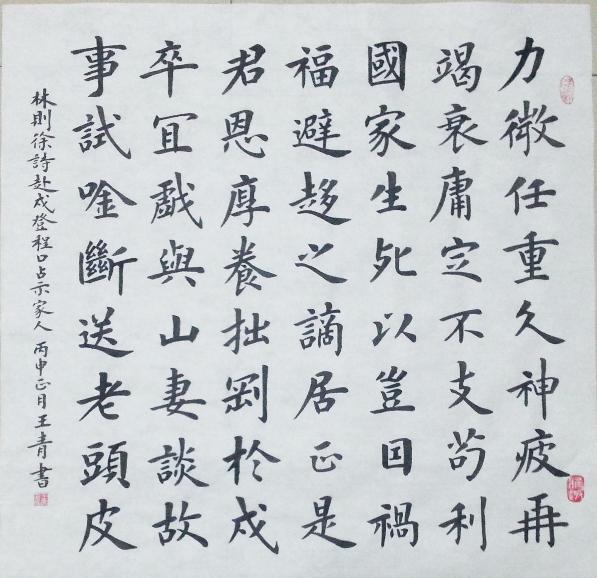 力微任重久神疲再
竭衰庸定不支苟利
國家生死以豈因禍
福避趍之謫居正是
君恩厚養拙剛於戍
卒冝戲與山妻談故
事試唫斷送老頭皮
林則徐詩赴戍登程口占示家人 丙申正月王青書